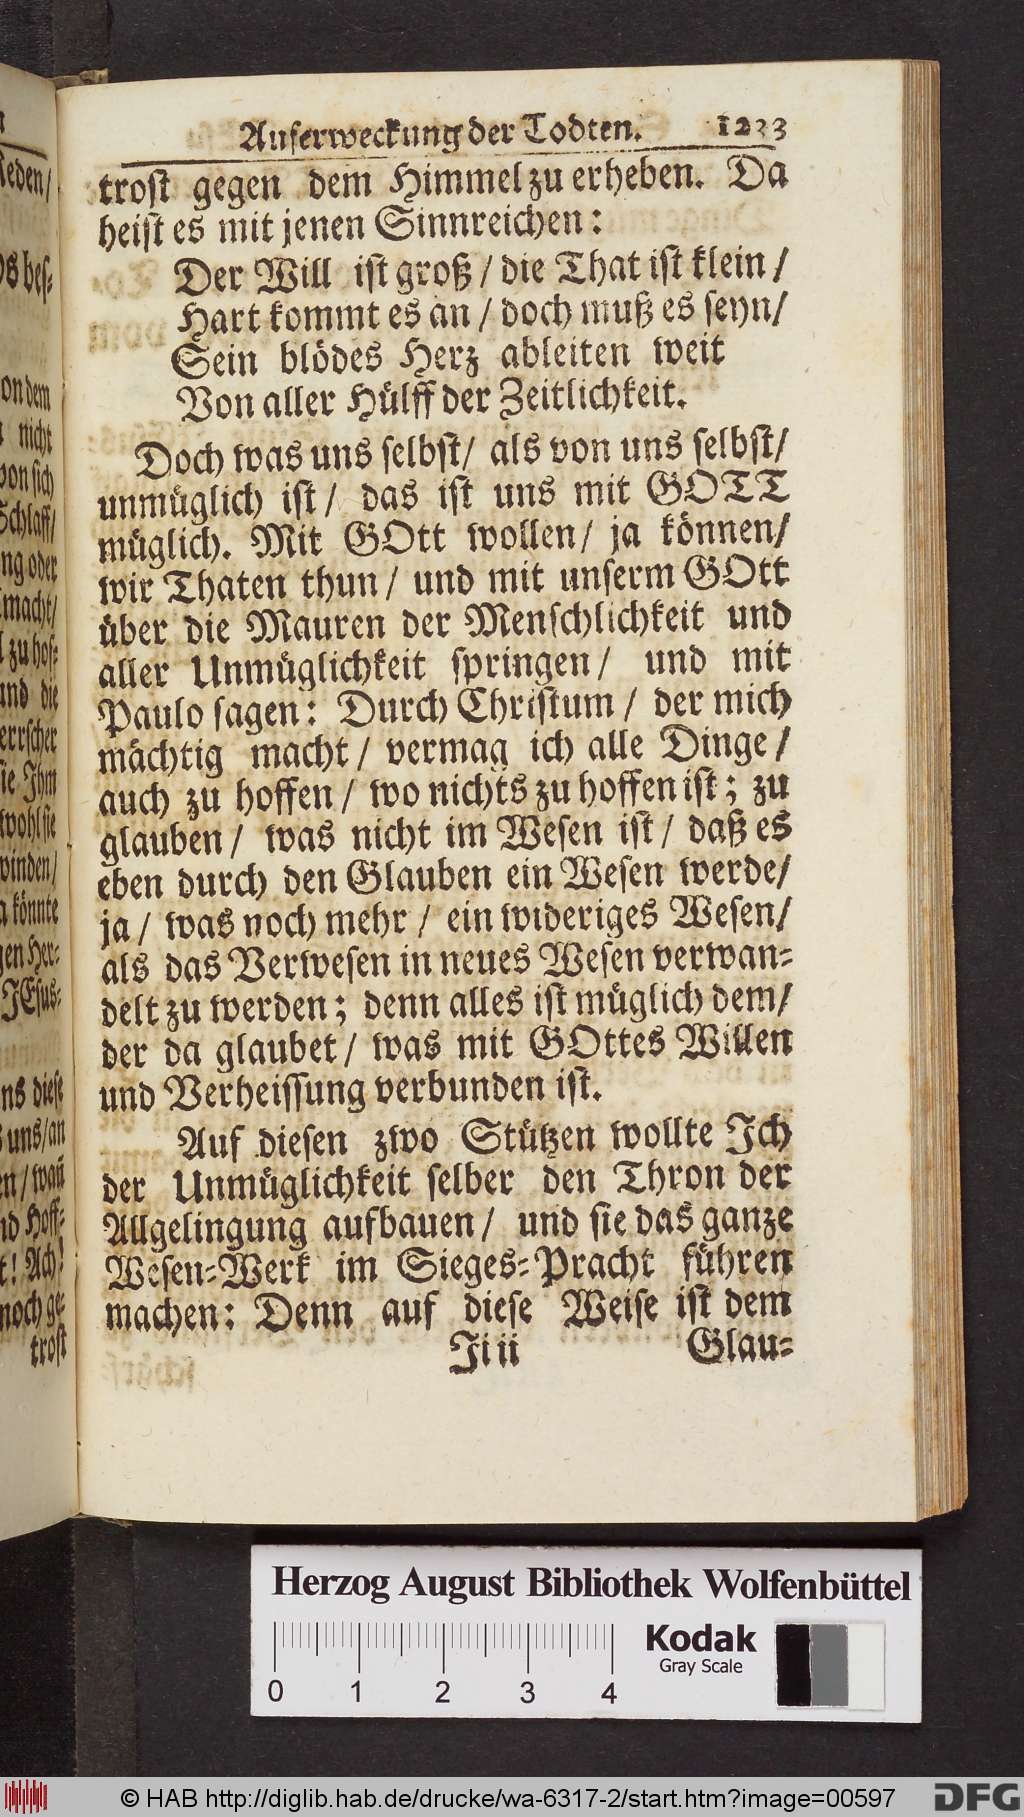 Auferweckung der Todten. 1233
trost gegen dem Himmel zu erheben. Da
heist es mit jenen Sinnreichen:
Der Will ist groß / die That ist klein /
Hart kommt es an / doch muß es seyn /
Sein blödes Herz ableiten weit
Von aller Hülff der Zeitlichkeit.
Doch was uns selbst / als von uns selbst /
unmüglich ist / das ist uns mit GOTT
müglich. Mit GOtt wollen / ja können /
wir Thaten thun / und mit unserm GOtt
über die Mauren der Menschlichkeit und
aller Unmüglichkeit springen / und mit
Paulo sagen: Durch Christum / der mich
mächtig macht / vermag ich alle Dinge /
auch zu hoffen / wo nichts zu hoffen ist; zu
glauben / was nicht im Wesen ist / daß es
eben durch den Glauben ein Wesen werde /
ja / was noch mehr / ein wideriges Wesen /
als das Verwesen in neues Wesen verwan-
delt zu werden; denn alles ist müglich dem /
der da glaubet / was mit GOttes Willen
und Verheissung verbunden ist.
Auf diesen zwo Stützen wollte Ich
der Unmüglichkeit selber den Thron der
Allgelingung aufbauen / und sie das ganze
Wesen-Werk im Sieges-Pracht führen
machen: Denn auf diese Weise ist dem
Jiii Glau-
eden /
bes-
on dem
nicht
von sich
Schlaff /
ng oder
macht /
zu hof-
und die
errscher
sie Ihm
wohl sie
winden /
könnte
gen Her-
JEsus-
ns diese
uns / an
en / wañ
nd Hoff-
t! Ach!
noch ge-
trost
Herzog August Bibliothek Wolfenbüttel
Kodak
Gray Scale
0 1 2 3 4
© HAB http://diglib.hab.de/drucke/wa-6317-2/start.htm?image=00597
DFG